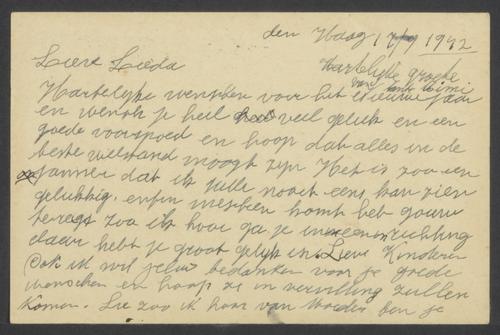 den Haag 17/9 1942
Lieve Lieda
Hartelijke groete
van
Hartelijke wenschen voor het Nieuwe jaar
en wensch je heil veel geluk en een
goede voorspoed en hoop dat alles in de
beste welstand moogt zijn Het is zoo een
jammer dat ik jullie nooit eens kan zien
gelukkig. enfin misschien komt het gauw
terecht zoo ik hoor ga je in een inrichting
daar hebt je groot gelijk in. Lieve Kinderen
Ook ik wil jelui bedanken voor je goede
wenschen en hoop ze in vervulling zullen
komen. Lie zoo ik hoor van Moeder ben je